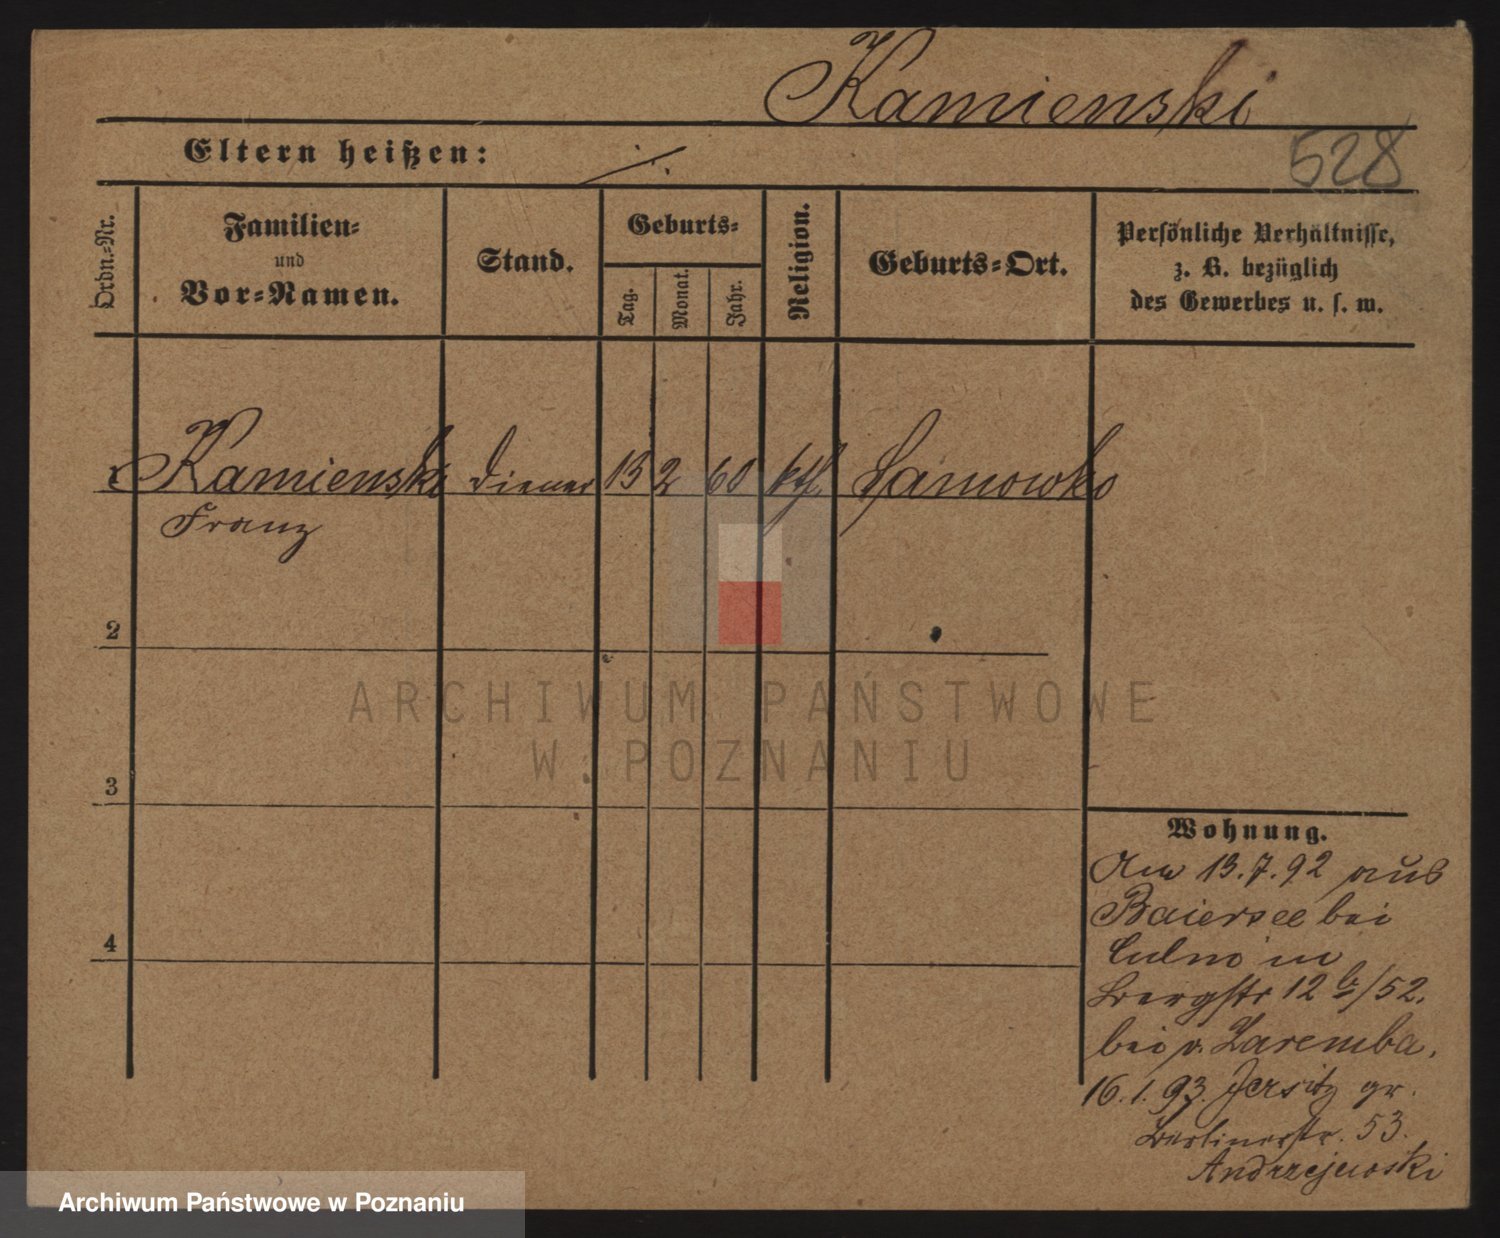 Kamienski
528
Eltern heißen: ./.
Ordn.-Nr.
Familien-
und
Vor-Namen.
Stand.
Geburts-
Tag.
Monat.
Jahr.
Religion.
Geburts-Ort.
Persönliche Verhältnisse,
z. B. bezüglich
des Gewerbes u. s. w.
1 Kamienski Diener 15 2 60 kth.
Franz
2
3
4
Wohnung.
13.7.92 aus
Baiersee bei
Culm in
Bergstr 12 b/52.
bei v. Zaremba.
16.1.93. Jersitz gr.
Berlinerstr. 53.
Andrzejewski
ARCHIWUM PAŃSTWOWE
W POZNANIU
Archiwum Państwowe w Poznaniu